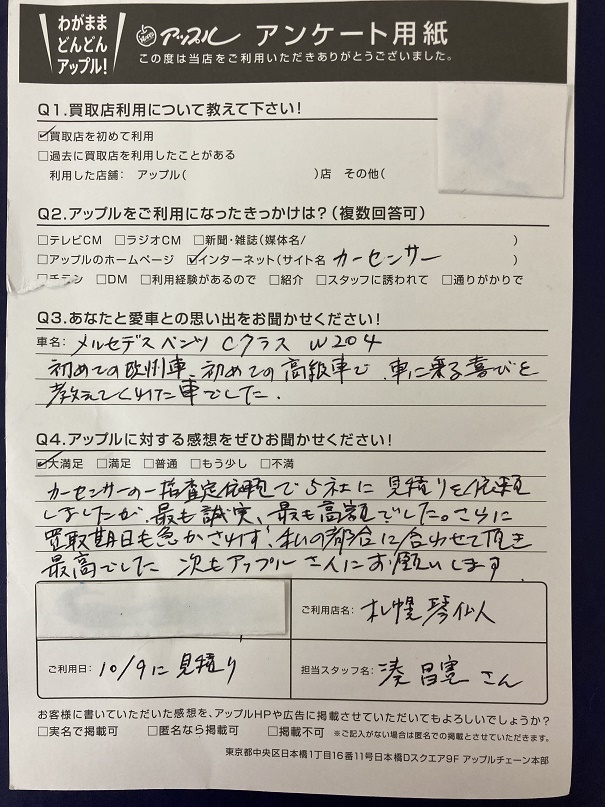 わがまま
どんどん
アップル!
アップル アンケート用紙
この度は当店をご利用いただきありがとうございました。
Q1.買取店利用について教えて下さい!
☑買取店を初めて利用
□過去に買取店を利用したことがある
利用した店舗: アップル( )店 その他(
Q2.アップルをご利用になったきっかけは?(複数回答可)
□テレビCM □ラジオCM □新聞・雑誌(媒体名/ )
□アップルのホームページ ☑インターネット(サイト名 カーセンサー )
チラシ □DM □利用経験があるので □紹介 □スタッフに誘われて □通りがかりで
Q3.あなたと愛車との思い出をお聞かせください!
車名: メルセデスベンツ Cクラス W204
初めての欧州車、初めての高級車で、車に乗る喜びを
教えてくれた車でした.
Q4.アップルに対する感想をぜひお聞かせください!
☑大満足 □満足 □普通 □もう少し □不満
カーセンサーの一括査定依頼で5社に見積りを依頼
しましたが、最も誠実、最も高額でした。さらに
買取期日も急かされず、私の都合に合わせて頂き
最高でした 次もアップルさんにお願いします
ご利用店名: 札幌琴似
ご利用日: 10/9に見積り
担当スタッフ名: 湊 昌憲 さん
お客様に書いていただいた感想を、アップルHPや広告に掲載させていただいてもよろしいでしょうか?
□実名で掲載可 □匿名なら掲載可 □掲載不可 ※ご記入がない場合は匿名での掲載とさせていただきます。
東京都中央区日本橋1丁目16番11号日本橋Dスクエア9F アップルチェーン本部